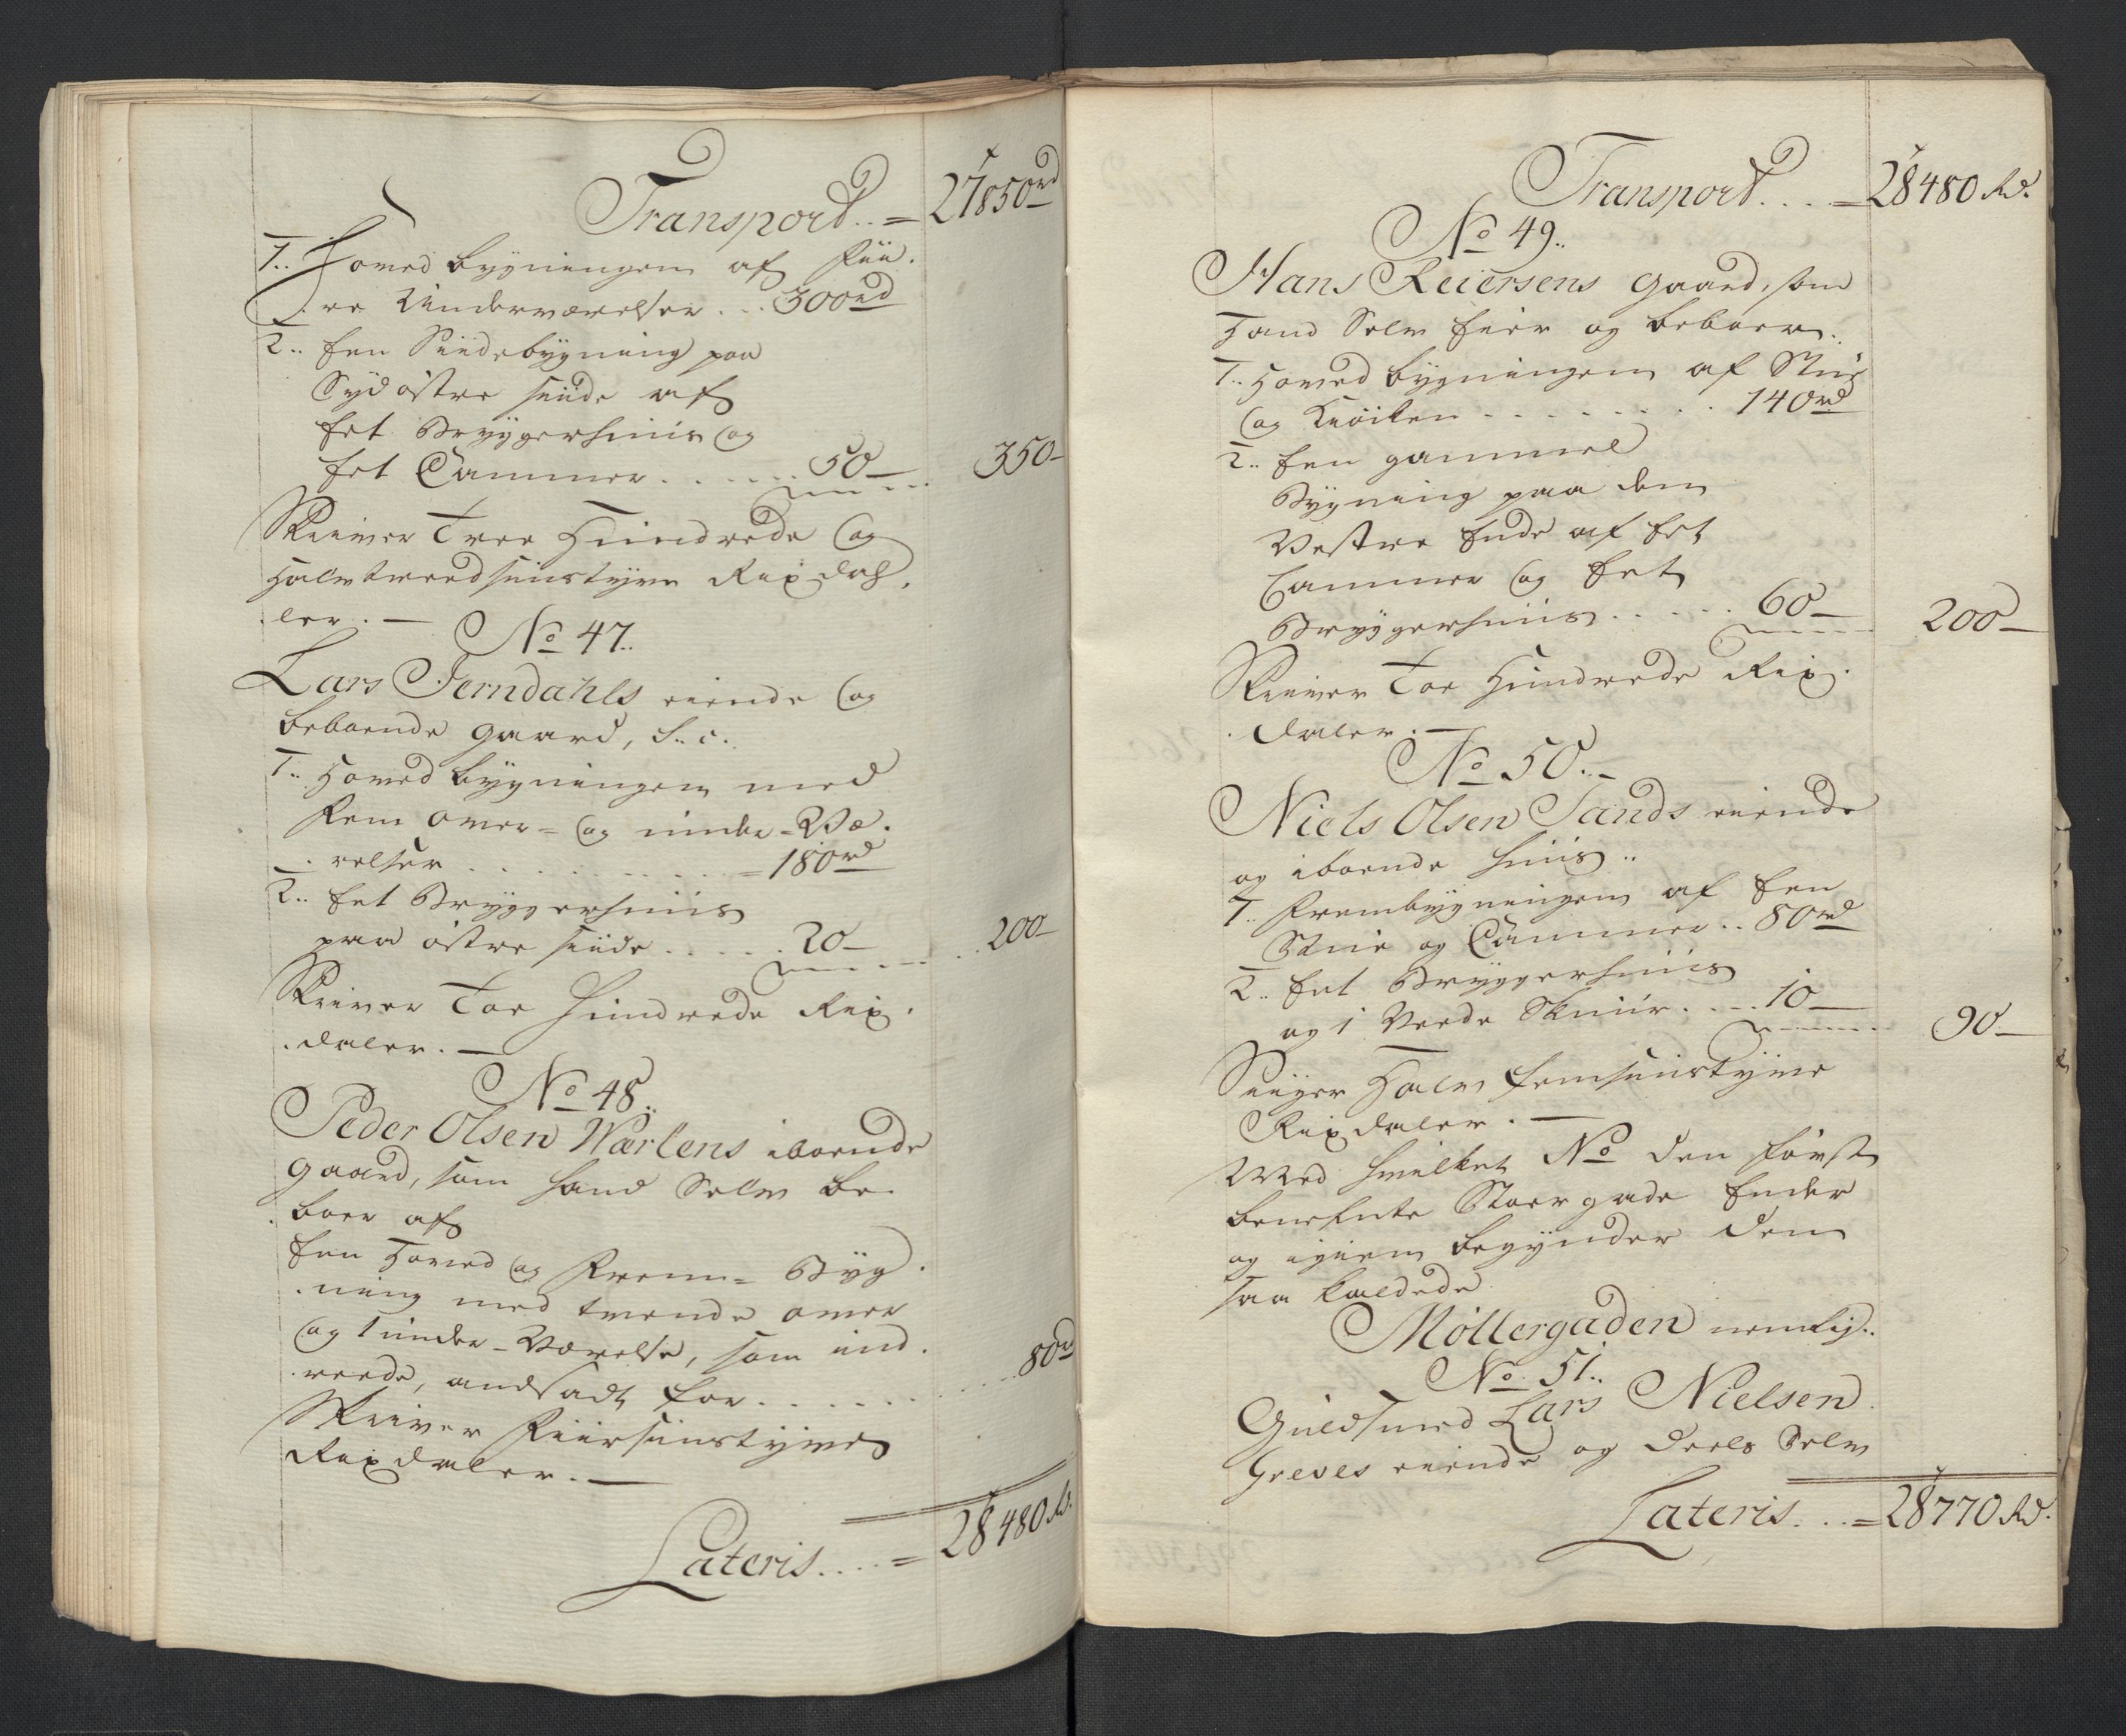 Transport.. = 27850rd
1.. Hoved bygningen af Fii-
re Underværelser... 300rd
2.. Een Siidebygning paa
Sydøstre siide af
Eet Bryggerhuus og
Eet Cammer....... 50 — 350 —
Skriver Tree Hundrede og
Halvtreedsindstyve Rixdah-
ler. —
No 47..
Lars Jerndahls eiende og
beboende Gaard, S. c.
1.. Hoved bygningen med
Fem over- og under-Væ-
relser.......... = 180rd
2.. Eet Bryggerhuus
paa østre siide..... 20 — 200 —
Skriver Toe Hundrede Rix-
daler. —
No 48..
Peder Olsen Wærlens iboende
Gaard, som hand Selv be-
boer af
Een Hoved og Frem- Byg-
ning med tvende over
og 1 under-Værelse, som ind-
reede, ansadt for.......... 80rd
Skriver Fiirsindstyve
Rixdaler. —
Lateris.... = 28480 Rd.
Transport.... = 28480 Rd.
No 49..
Hans Reiersens Gaard, som
Hand Selv Eier og beboer.
1.. Hoved bygningen af Stue
og Kiøiken........ 140rd
2.. Een gammel
Bygning paa den
Vestre Ende af Eet
Cammer og Eet
Bryggerhuus..... 60 — 200 —
Skriver Toe Hundrede Rix-
daler. —
No 50..
Niels Olsen Sands eiende
og iboende huus..
1.. Frembygningen af Een
Stue og Cammer.. 80rd
2.. Eet Bryggerhuus
og 1 Veede Skuur.... 10 — 90 —
Siiger Halv femsindstyve
Rixdaler. —
Med hvilket No den først
benefnte Stoergade Ender
og igien begynder den
saa kaldede
Møllergaden nemlig..
No 51..
Guldsmed Lars Nielsen
Greves eiende og deels Selv
Lateris.... = 28770 Rd.